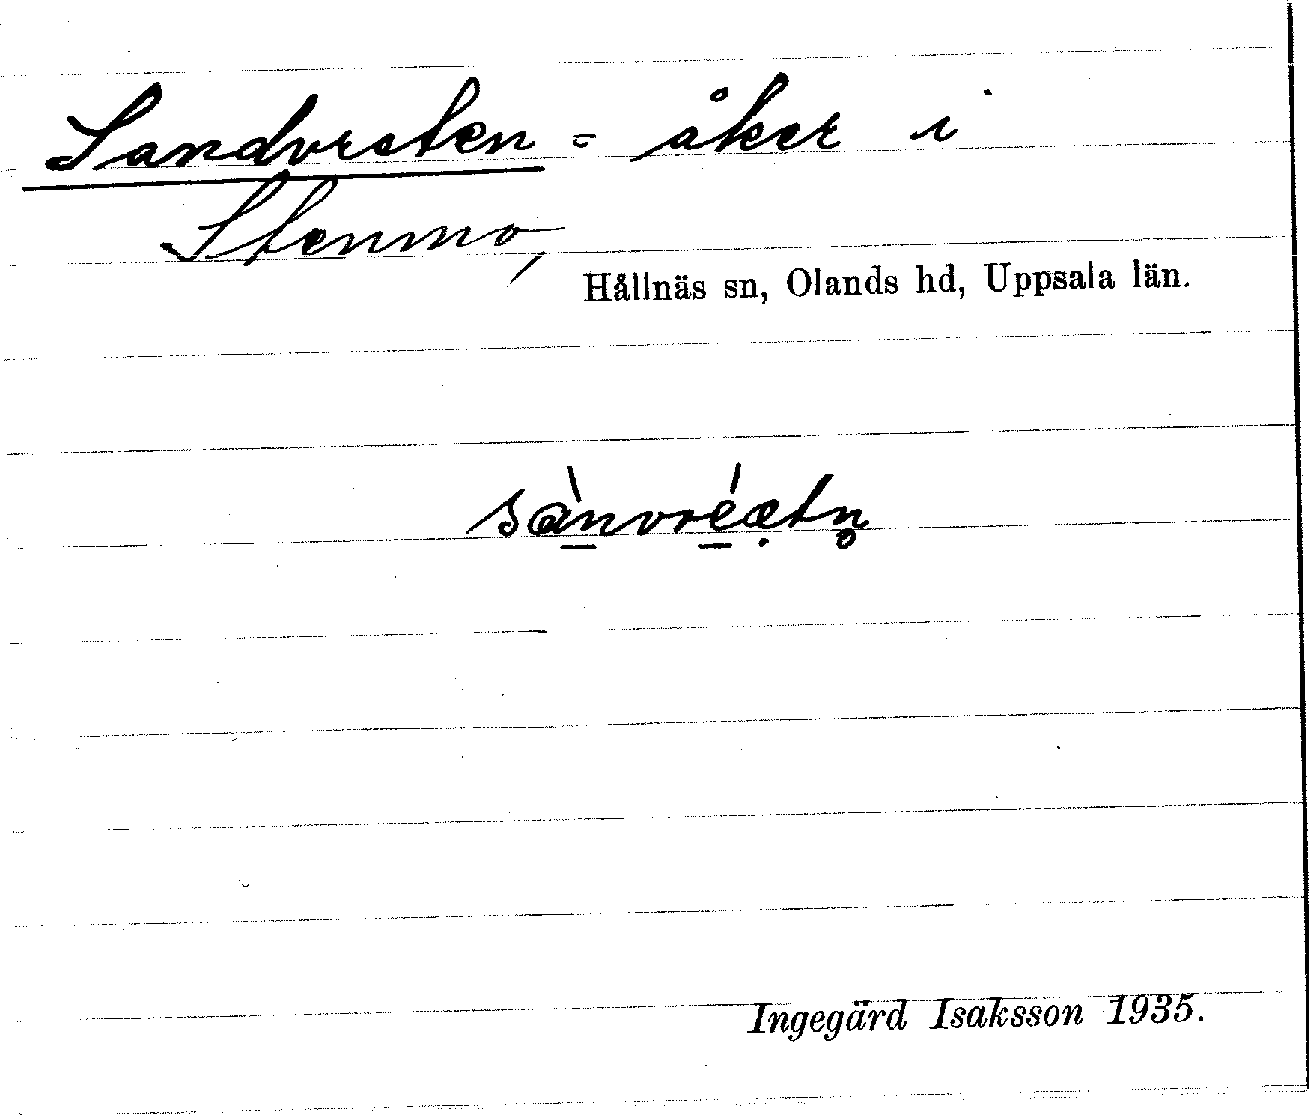 Sandvreten = åker i
Stenmo,
Hållnäs sn, Olands hd, Uppsala län.
sà̱nvré̱æ̣tn̥
Ingegärd Isaksson 1935.